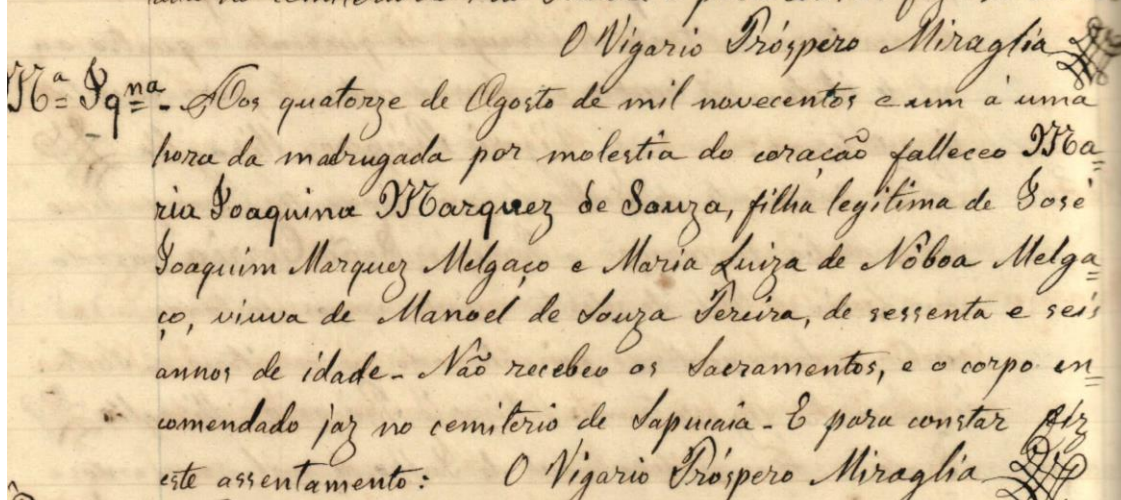 O Vigario Próspero Miraglia
Mª Jqna - Aos quatorze de Agosto de mil novecentos e um á uma
hora da madrugada por molestia do coração falleceo Ma=
ria Joaquina Marquez de Souza, filha legitima de José
Joaquim Marquez Melgaço e Maria Luiza de Nôboa Melga=
ço, viuva de Manoel de Souza Pereira, de sessenta e seis
annos de idade - Não recebeo os Sacramentos, e o corpo en=
comendado jaz no cemiterio de Sapucaia - E para constar fiz
este assentamento: O Vigario Próspero Miraglia